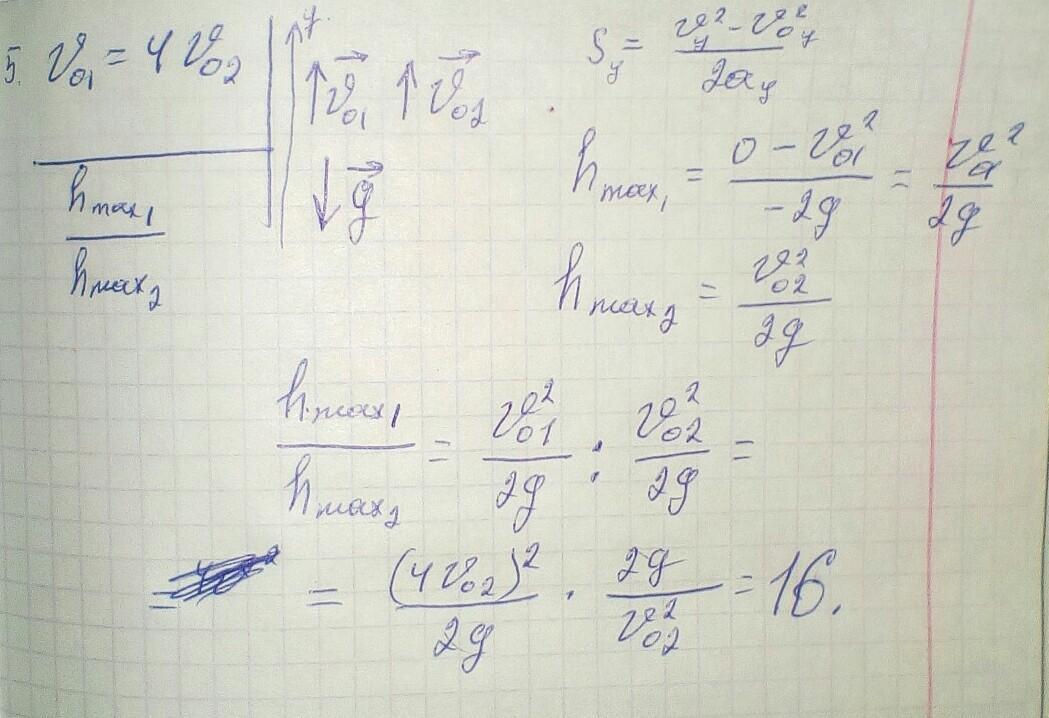 5. v₀₁ = 4 v₀₂
h max₁ / h max₂
y
v⃗₀₁ v⃗₀₂
g⃗
S_y = (v_y² - v₀_y²) / 2a_y
h max₁ = (0 - v₀₁²) / (-2g) = v₀₁² / 2g
h max₂ = v₀₂² / 2g
h max₁ / h max₂ = v₀₁² / 2g : v₀₂² / 2g =
= (4 v₀₂)² / 2g · 2g / v₀₂² = 16.